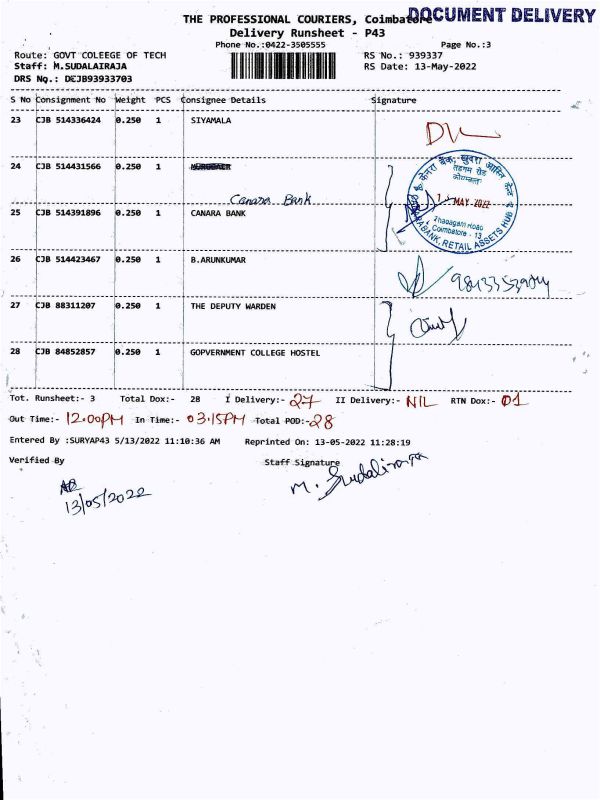 DOCUMENT DELIVERY
THE PROFESSIONAL COURIERS, Coimbatore
Delivery Runsheet - P43
Phone No.:0422-3505555 Page No.:3
Route: GOVT COLEEGE OF TECH RS No.: 939337
Staff: M.SUDALAIRAJA RS Date: 13-May-2022
DRS No.: DCJB93933703
S No Consignment No Weight PCS Consignee Details Signature
23 CJB 514336424 0.250 1 SIYAMALA
24 CJB 514431566 0.250 1
Canara Bank
25 CJB 514391896 0.250 1 CANARA BANK
केनरा बैंक
तडगम रोड
MAY 2022
Thadagam Road
Coimbatore - 13
RETAIL ASSETS HUB
26 CJB 514423467 0.250 1 B.ARUNKUMAR
27 CJB 88311207 0.250 1 THE DEPUTY WARDEN
28 CJB 84852857 0.250 1 GOPVERNMENT COLLEGE HOSTEL
Tot. Runsheet:- 3 Total Dox:- 28 I Delivery:- 27 II Delivery:- NIL RTN Dox:- 01
Out Time:- 12.00PM In Time:- 03.15PM Total POD:- 28
Entered By :SURYAP43 5/13/2022 11:10:36 AM Reprinted On: 13-05-2022 11:28:19
Verified By Staff Signature
M. Sudaliraja
13/05/2022